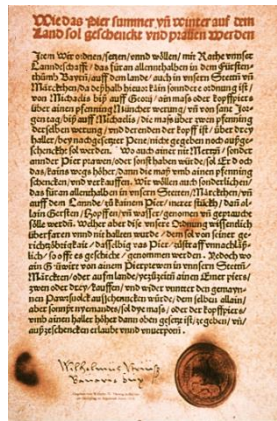 Wie das Pier summer vñ winter auf dem
Land sol geschenckt vnd praüen werden
Item Wir ordnen / setzen / vnnd wöllen / mit Rathe vnnser
Lanndschafft / das für an allennthalben in dem Fürsten-
thůmb Bayrñ / auff dem lande / auch in vnsern Stettñ vñ
Märckthen / da deßhalb hieuor kain sonndere ordnung ist /
von Michaelis biß auff Georij / ain mass oder kopffpiers
über ainen pfenning Müncher werung / vñ von sant Jor-
gentag / biß auff Michaelis / die mass über zwen pfenning
derselben werung / vnd derenden der kopff ist / über drey
haller / bey nachgesetzter Pene / nicht gegeben noch ausge-
schenckht sol werden. Wo auch ainer nit Mertzñ / sonder
annder Pier prawen / oder sonst haben würde / sol Er doch
das / kains wegs höher / dann die maß vmb ainen pfenning
schencken / vnd verkauffen. Wir wöllen auch sonderlichen /
das für an allenthalben in vnsern Stetten / Märckthen / vñ
auff dem Lannde / zů kainem Pier / merer stückh / dañ al-
lain Gersten / Hopffen / vñ wasser / genomen vñ gepraucht
sölle werdñ. Welher aber dise vnsere Ordnung wissentlich
überfaren vnnd nit hallten wurde / dem sol von seiner ge-
richtzöbrigkait / dasselbig vas Pier / zůstraff vnnachläß-
lich / so offt es geschicht / genommen werden. Jedoch wo
ain Güwirt von ainem Pierprewen in vnnsern Stettñ /
Märckten / oder aufm lande / yezůzeitñ ainen Emer piers /
zwen oder drey / kauffen / vnd wider vnnter den gemayn-
nen Pawrsuolck ausschenncken würde / dem selben allain /
aber sonnst nyemandts / sol dye mass / oder der kopffpiers /
vmb ainen haller höher dann oben gesetzt ist / zegeben / vñ /
außzeschencken erlaubt vnnd vnuerpotñ.
Wilhelmus
dux